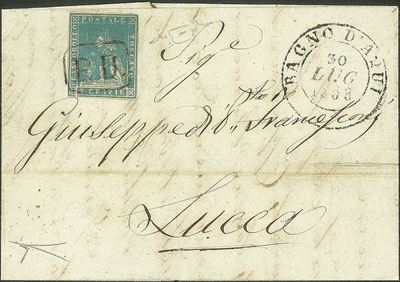 FRANCOBOLLO POSTALE TOSCANO
2 CRAZIE
P.D.
BAGNO D'AQUI
30
LUG
1853
Sig.r
Giuseppe di Francesconi
Lucca